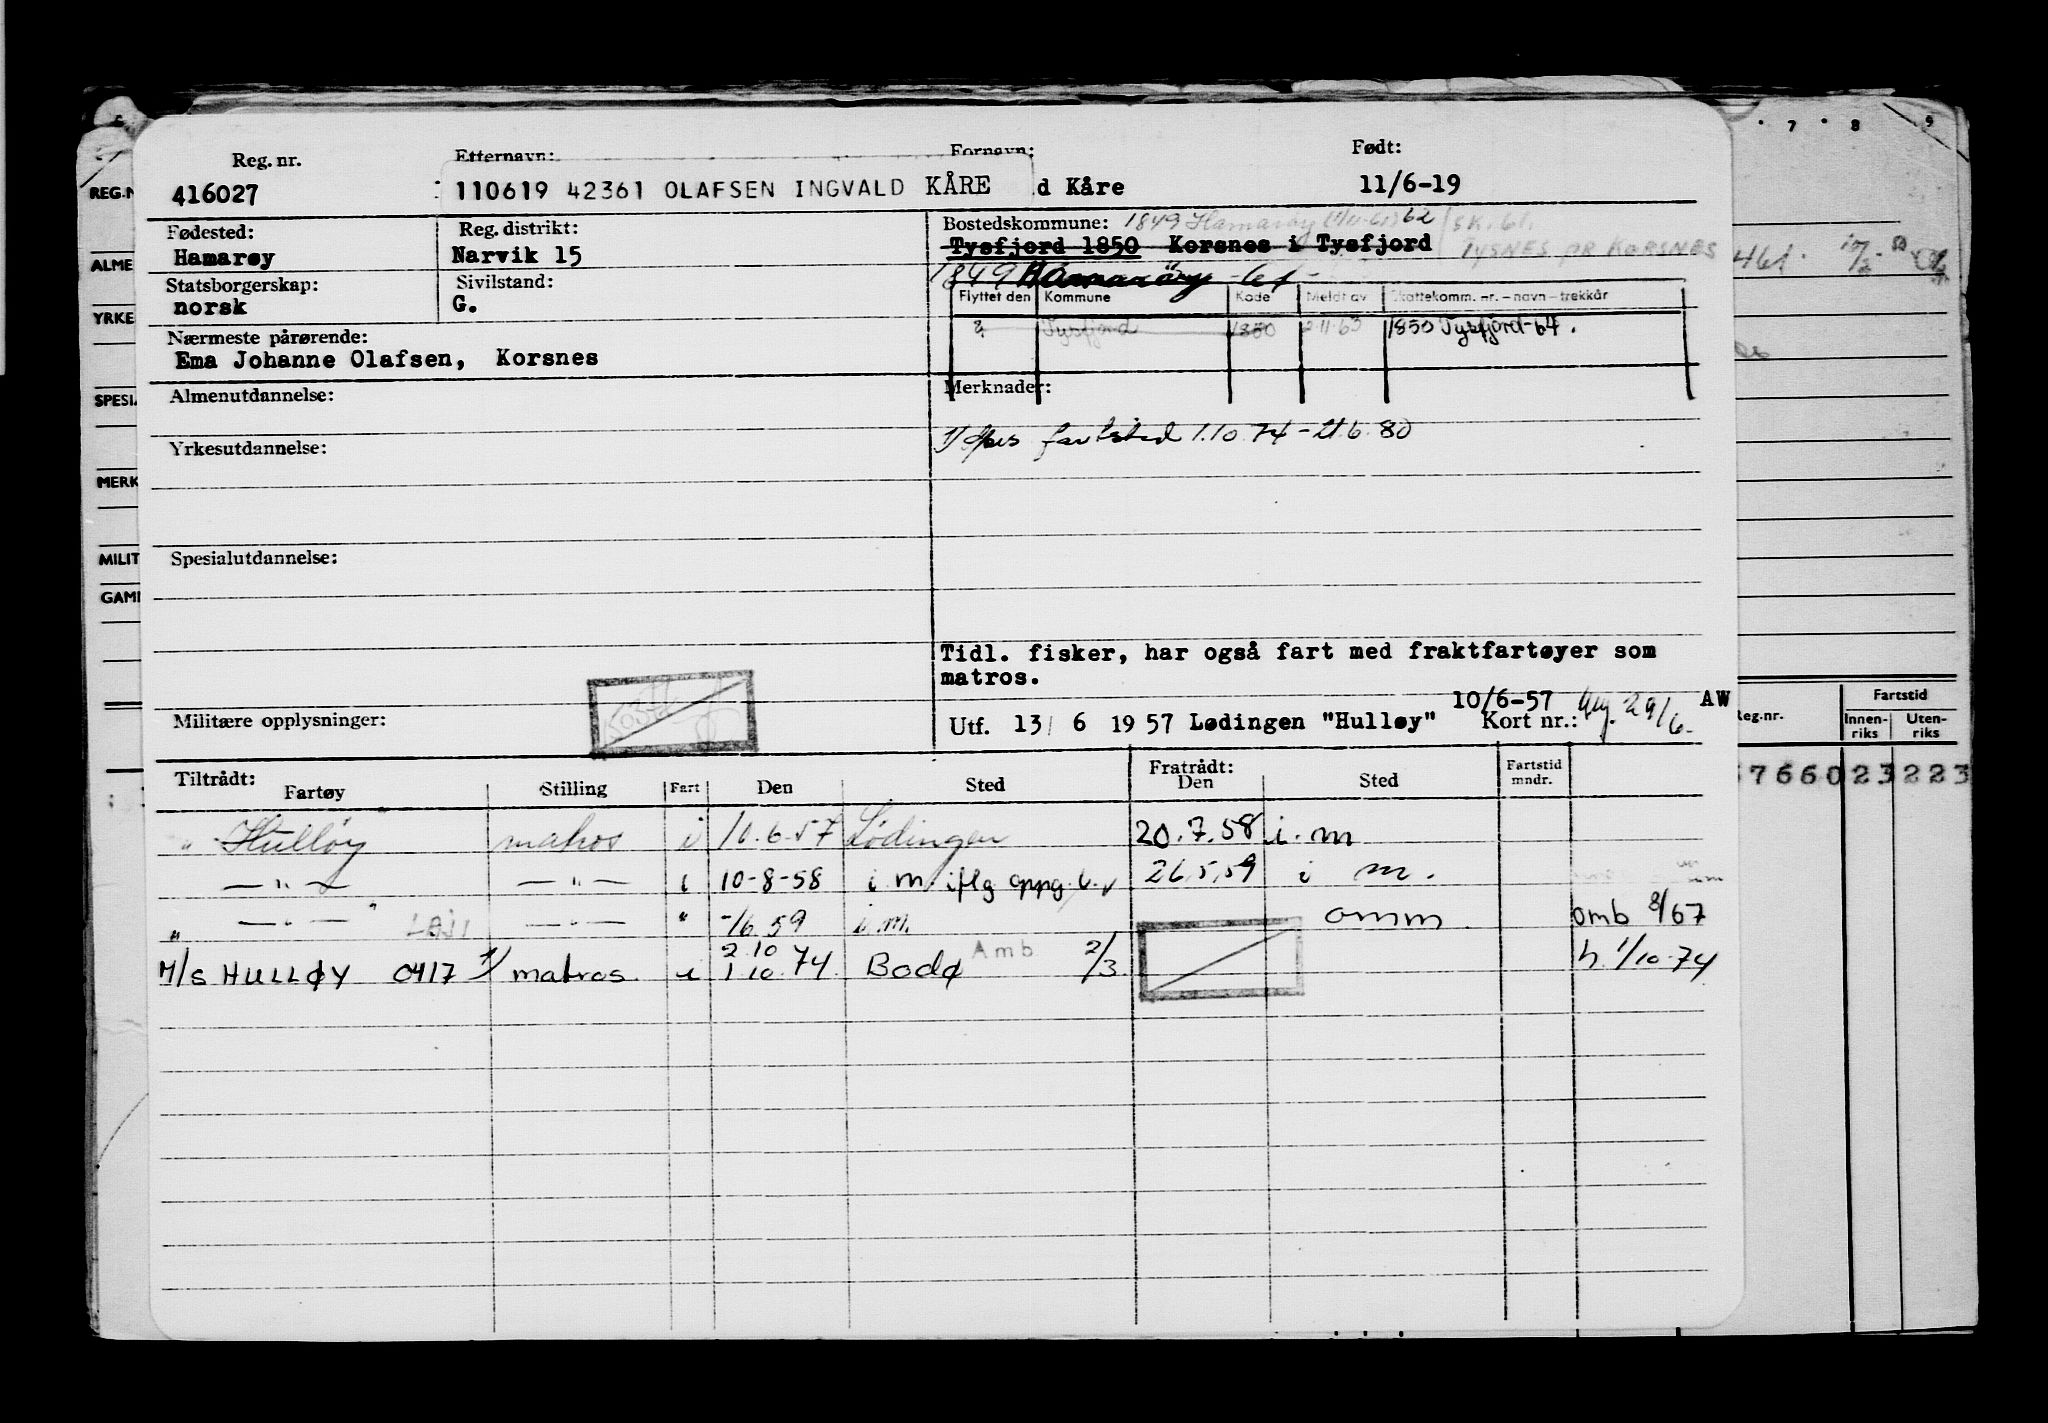 Reg. nr. Etternavn: Fornavn: Født:
416027 110619 42361 OLAFSEN INGVALD KÅRE d Kåre 11/6-19
Fødested: Reg. distrikt: Bostedskommune: 1849 Hamarøy 62 SK. 61.
Hamarøy Narvik 15 Tysfjord 1850 Korsnes i Tysfjord TYSNES pr KORSNES
Statsborgerskap: Sivilstand: 1849 Hamarøy -61-
norsk G. Flyttet den Kommune Kode Meldt av Skattekomm. nr. – navn – trekkår
Nærmeste pårørende: Tysfjord 1850 2.11.63 1850 Tysfjord-64.
Ema Johanne Olafsen, Korsnes
Almenutdannelse: Merknader:
Yrkesutdannelse: 1) fartstid 1.10.74 - 6.80
Spesialutdannelse:
Tidl. fisker, har også fart med fraktfartøyer som
matros.
10/6-57 29/6. AW
Militære opplysninger: Utf. 13/ 6 1957 Lødingen "Hulløy" Kort nr.:
Tiltrådt: Fratrådt: Fartstid
Fartøy Stilling Fart Den Sted Den Sted mndr.
" Hulløy matros i 10.6.57 Lødingen 20.7.58 i. m
— " — — " — i 10-8-58 i. m. iflg oppg. 26.5.59 i m.
— " — — " — " -/6 59 i. m. omm omb 8/67
M/S HULLØY 0417 1) matros i 2 10 1 10 74 Bodø Amb 2/3 h. 1/10-74
REG.N
ALME
YRKE
SPESIA
MERK
MILIT
GAMI
7 8 9
461.
Fartstid
Reg.nr. Innen-riks Uten-riks
7660 23 223